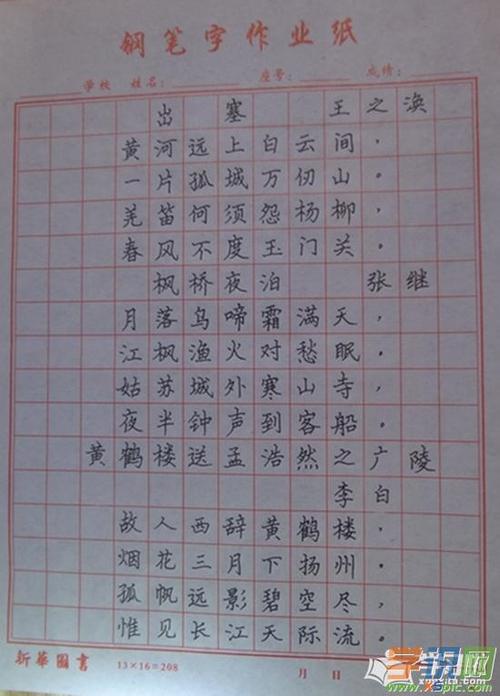 钢笔字作业纸
学校 姓名： 座号： 成绩：
出 塞 王之涣
黄河远上白云间，
一片孤城万仞山。
羌笛何须怨杨柳，
春风不度玉门关。
枫桥夜泊 张继
月落乌啼霜满天，
江枫渔火对愁眠。
姑苏城外寒山寺，
夜半钟声到客船。
黄鹤楼送孟浩然之广陵
李白
故人西辞黄鹤楼，
烟花三月下扬州。
孤帆远影碧空尽，
惟见长江天际流。
新華圖書 13×16=208 月 日